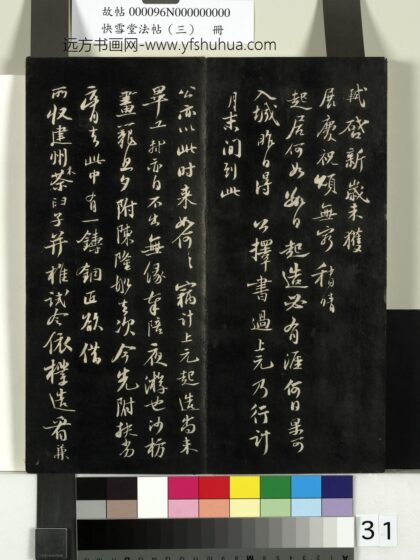 故帖 000096N000000000
快雪堂法帖（三） 冊
远方书画网-www.yfshuhua.com
軾啓新歲未獲
展慶祝頌無窮稍晴
起居何如數日起造必有涯何日果可
入城昨日得公擇書過上元乃行計
月末間到此
公亦以此時來如何〻竊計上元起造尚未
畢工軾亦自不出無緣奉陪夜游也沙枋
畫籠旦夕附陳隆船去次今先附扶劣
膏去此中有一鑄銅匠欲借
所收建州木茶臼子并椎試令依樣造看兼
31